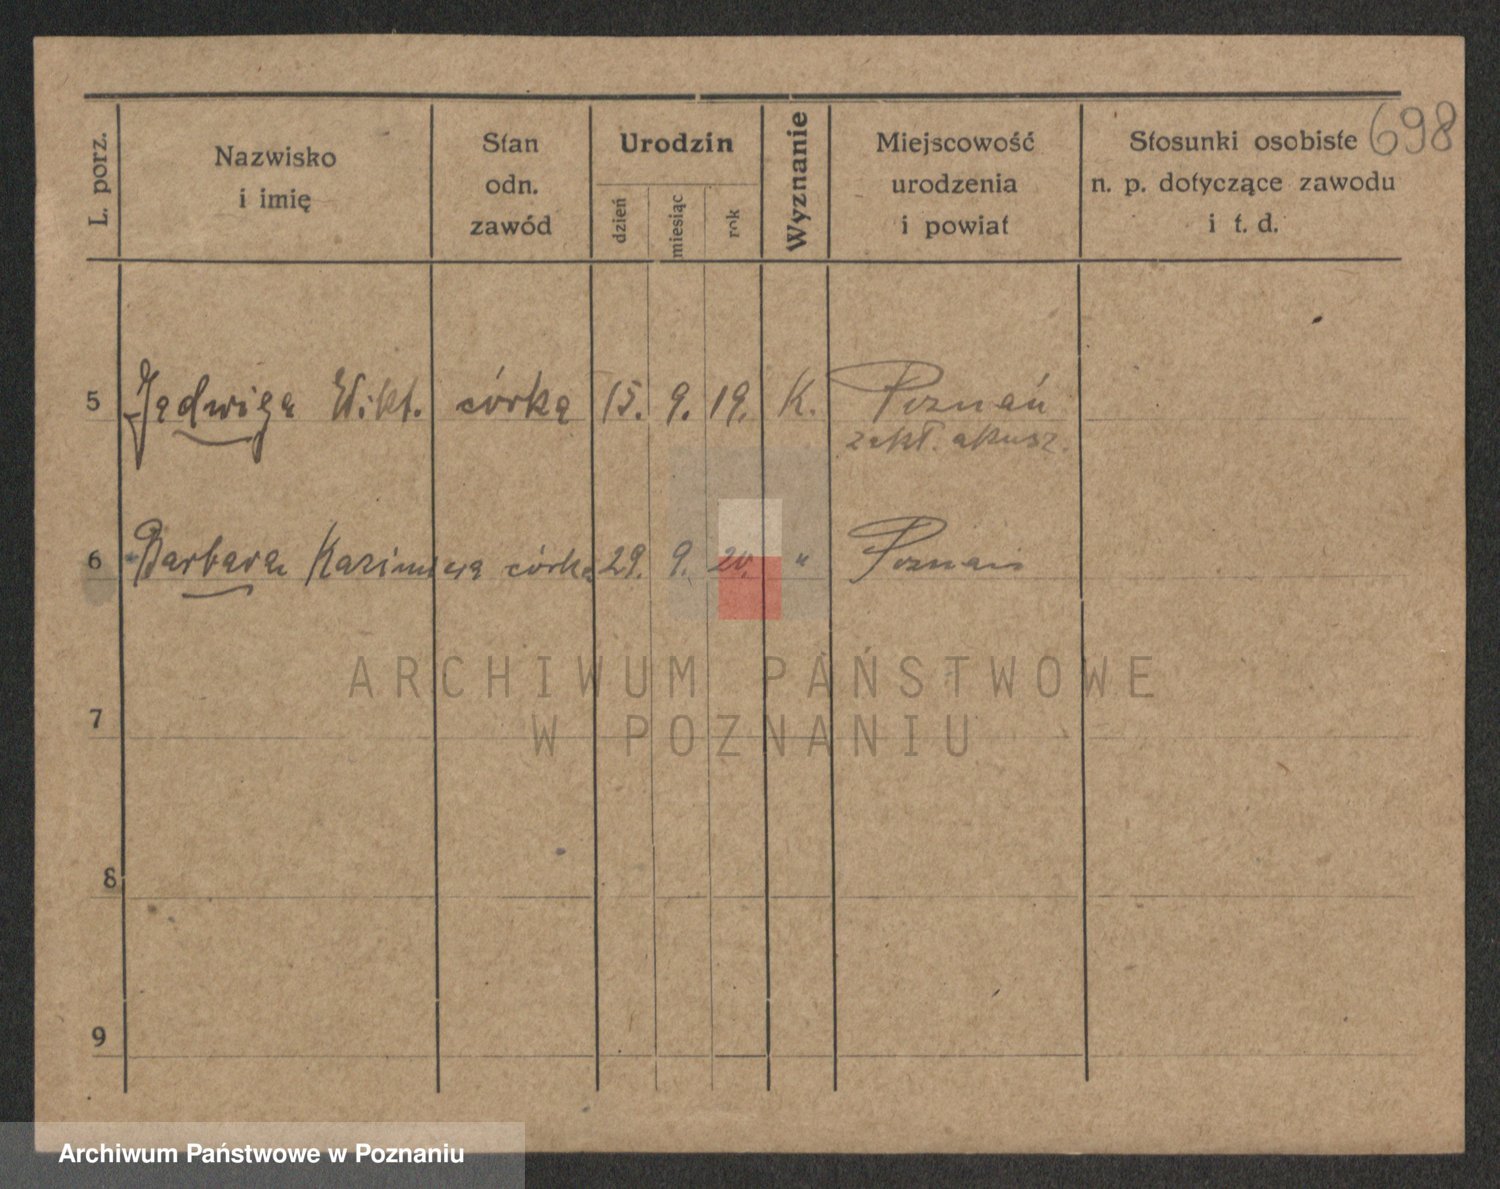 698
L. porz.
Nazwisko
i imię
Stan
odn.
zawód
Urodzin
dzień
miesiąc
rok
Wyznanie
Miejscowość
urodzenia
i powiat
Stosunki osobiste
n. p. dotyczące zawodu
i t. d.
5 Jadwiga Wikt. córka 15. 9. 19. K. Poznań
zakł. akusz.
6 Barbara Kazimiera córka 29. 9. 20. " Poznań
ARCHIWUM PAŃSTWOWE
W POZNANIU
7
8
9
Archiwum Państwowe w Poznaniu